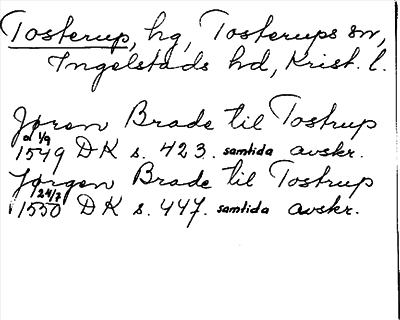 Tosterup, hg, Tosterups sn,
Ingelstads hd, Krist. l.
Jøren Brade til Tostrup
d 1/9
1549 DK s. 423. samtida avskr.
Jørgen Brade til Tostrup
24/7
1550 DK s. 447. samtida avskr.